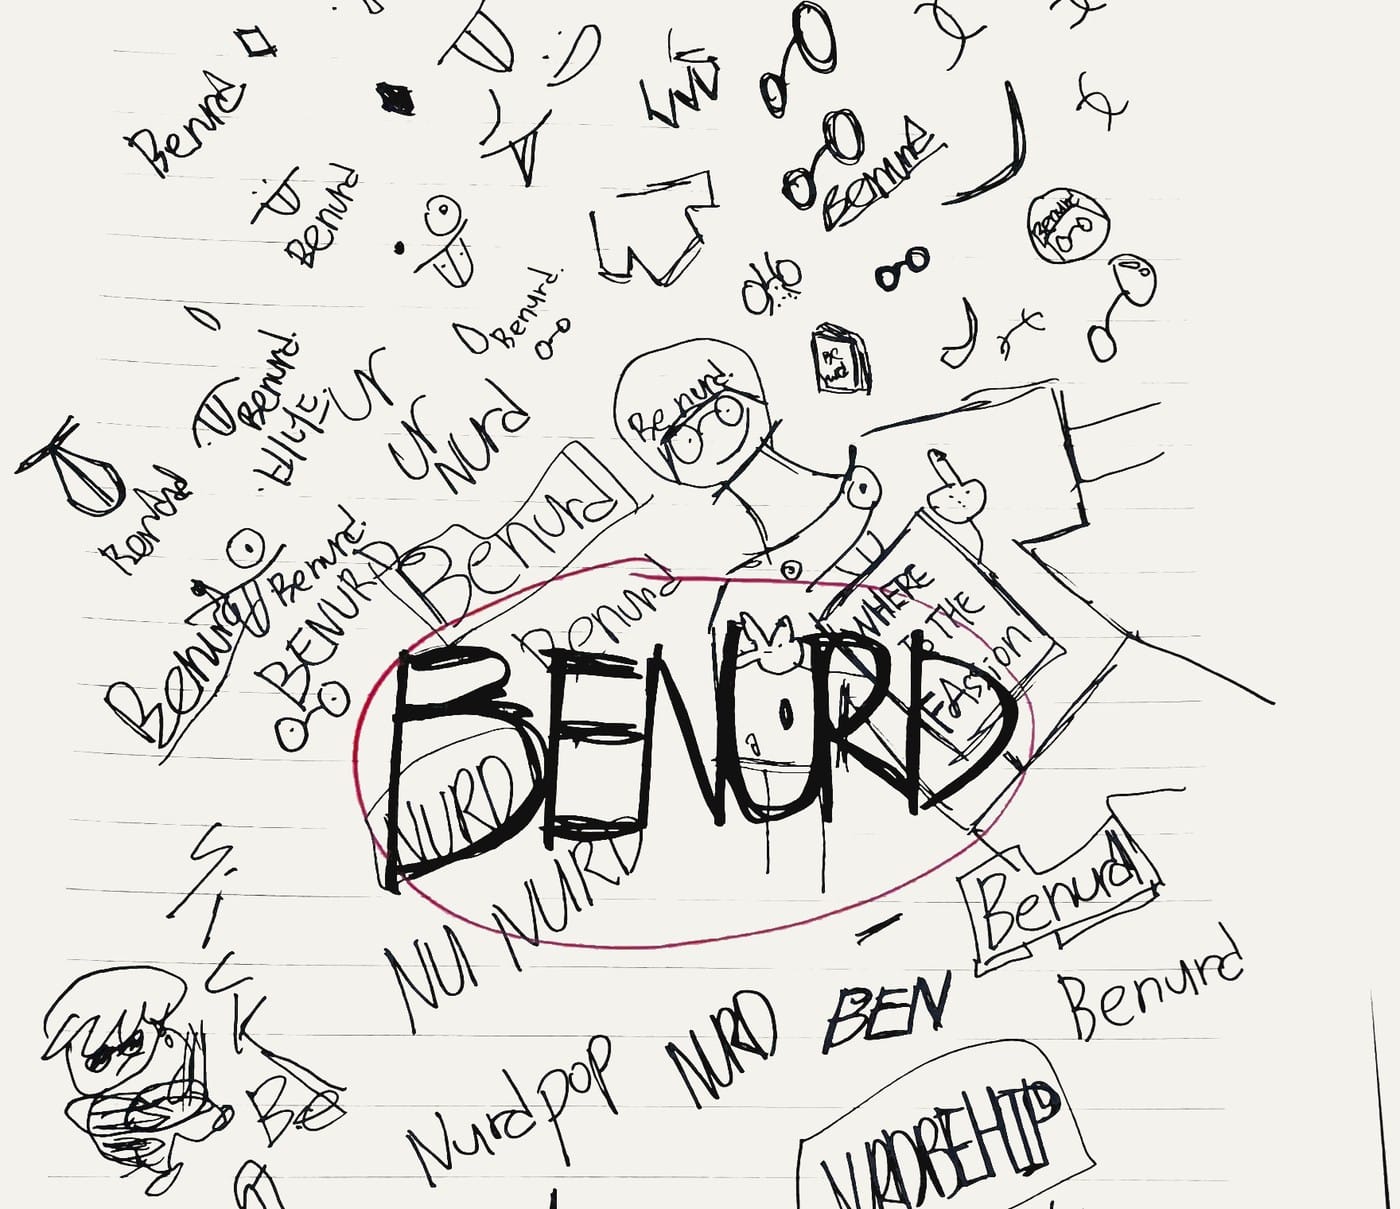 Benrd
Benurd
Benurd
Benurd
Benurd.
Benurd.
Benurd.
Ur
Ur
Nurd
BE
nurd
Benurd
Benurd.
BENURD
Benurd
Benurd
WHERE
IS THE
FAsjion
Benurd
BENURD
NURD
NU NURD
Benurd
Benurd
BEN
NURD
Nurdpop
SICK
Be
NURDBEHIP